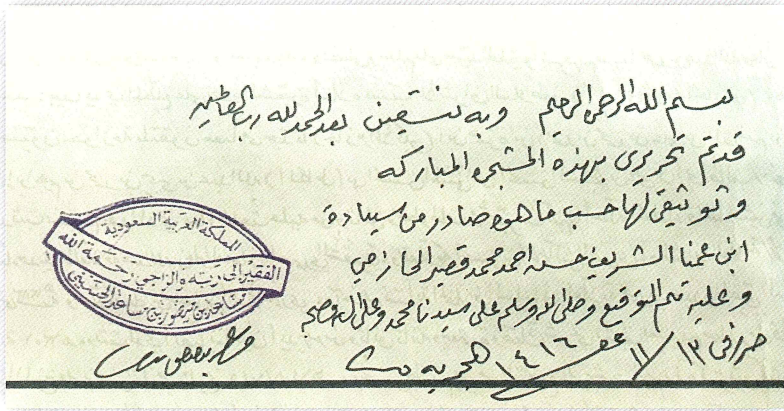 بسم الله الرحمن الرحيم وبه نستعين بعد الحمد لله رب العالمين
قد تم تحريري لهذة المشجره المباركه
وتوثيقي لها حسب ما هوه صادر من سيادة
ابن عمنا الشريف حسن احمد محمد قصير الحازمي
وعليه تم التوقيع وصلى الله وسلم على سيدنا محمد وعلى اله وصحبه
حرر في ١٣ / ١١ / ١٤١٦ الهجريه
المملكة العربية السعودية
الفقير إلى ربه والراجي رحمة الله
مساعد بن منصور بن مساعد الحسيني